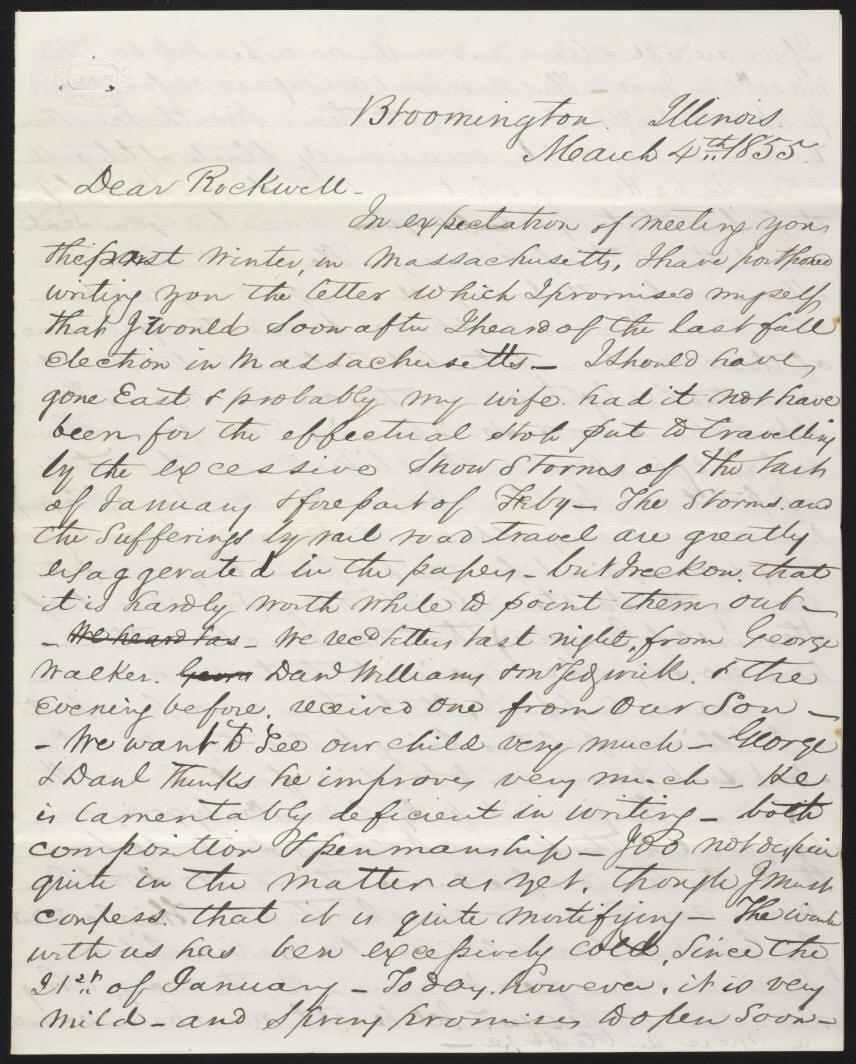 Bloomington. Illinois.
March 4th 1855
Dear Rockwell -
In expectation of meeting you
the past winter, in Massachusetts, I have postponed
writing you the letter which I promised myself
that I would soon after I heard of the last fall
election in Massachusetts - I should have
gone East & probably my wife. had it not have
been for the effectual stop put to travelling
by the excessive snow storms of the last
of January & forepart of Feby - The storms. and
the sufferings by rail road travel are greatly
exaggerated in the papers - but I reckon. that
it is hardly worth while to point them out -
- We heard has - We recd letters last night, from George
Walker. Danl Williams & Mr Sedgwick. & the
evening before. received one from our Son -
- We want to see our child very much - George
& Danl thinks he improves very much - He
is lamentably deficient in writing - both
composition & penmanship - I do not despair
quite in the matter as yet. though I must
confess. that it is quite mortifying - The winter
with us has been excessively cold, since the
21st of January - To day, however, it is very
mild - and spring promises to open soon -